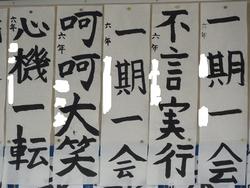 一期一会
六年
不言実行
六年
一期一会
六年
呵呵大笑
六年
心機一転
六年